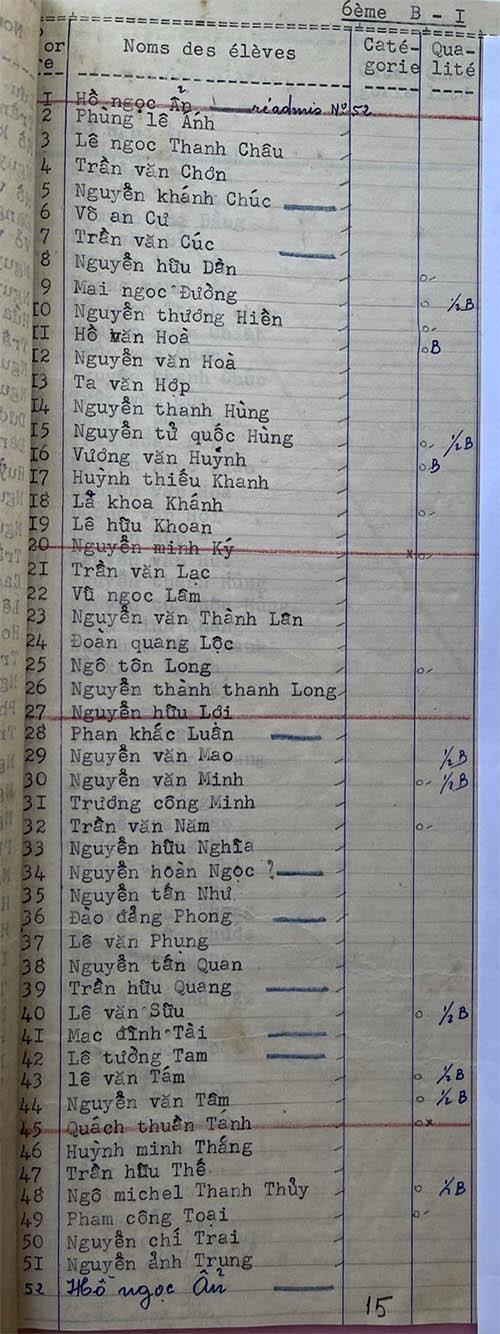 6ème B - I
Noms des élèves
Caté-
gorie
Qua-
lité
I Hồ ngọc Ẩn réadmis N° 52
2 Phùng lê Ánh
3 Lê ngoc Thanh Châu
4 Trần văn Chơn
5 Nguyễn khánh Chúc
6 Võ an Cư
7 Trần văn Cúc
8 Nguyễn hữu Dần o-
9 Mai ngoc Đường o ½B
I0 Nguyễn thương Hiền o-
II Hồ văn Hoà oB
I2 Nguyễn văn Hoà
I3 Ta văn Hợp
I4 Nguyễn thanh Hùng
I5 Nguyễn tử quốc Hùng o- ½B
I6 Vương văn Huỳnh oB
I7 Huỳnh thiếu Khanh
I8 Lã khoa Khánh o-
I9 Lê hữu Khoan
20 Nguyễn minh Ký x o-
2I Trần văn Lac
22 Vũ ngoc Lâm
23 Nguyễn văn Thành Lân
24 Đoàn quang Lộc
25 Ngô tôn Long o-
26 Nguyễn thành thanh Long
27 Nguyễn hữu Lợi
28 Phan khắc Luàn
29 Nguyễn văn Mao ½B
30 Nguyễn văn Minh o- ½B
3I Trương công Minh
32 Trần văn Năm o-
33 Nguyễn hữu Nghĩa
34 Nguyễn hoàn Ngọc ?
35 Nguyễn tấn Như
36 Đào đăng Phong
37 Lê văn Phung
38 Nguyễn tấn Quan
39 Trần hữu Quang
40 Lê văn Sửu o ½B
4I Mac đình Tài
42 Lê tưởng Tam
43 lê văn Tám o ½B
44 Nguyễn văn Tâm o ½B
45 Quách thuần Tánh ox
46 Huỳnh minh Thắng
47 Trần hữu Thế
48 Ngô michel Thanh Thủy o ½B
49 Pham công Toai o-
50 Nguyễn chí Trai
5I Nguyễn ảnh Trung
52 Hồ ngọc Ẩn
15